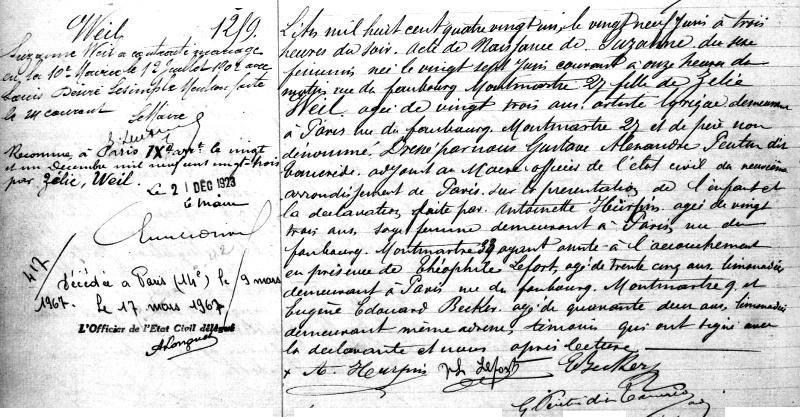 Weil 1219
Suzanne Weil a contracté mariage
en la 10e Mairie le 12 Juillet 1902 avec
Louis Désiré Lesimple Mention faite
le 24 courant Le Maire
Reconnue à Paris IXe arrt. le vingt
et un Décembre mil neuf cent vingt-trois
par Zélie, Weil.
Le 21 DEC 1923
Le Maire
417/
1967. Décédée à Paris (14e) le 9 mars
le 17 mars 1967
L'Officier de l'Etat Civil délégué
ALonguet
L'An mil huit cent quatre vingt un, le vingt neuf Juin à trois
heures du soir. Acte de Naissance de Suzanne du sexe
féminin née le vingt sept Juin courant à onze heures du
matin rue du faubourg Montmartre 27 fille de Zélie
Weil. agée de vingt trois ans, artiste lyrique demeurant
à Paris rue du faubourg. Montmartre 27 et de père non
dénommé. Dressé par nous Gustave Alexandre Pentin dit
adjoint au Maire officier de l'état civil du neuvième
arrondissement de Paris. sur la présentation de l'enfant et
la déclaration faite par Antoinette Hürpin agée de vingt
trois ans, sage femme demeurant à Paris, rue du
faubourg. Montmartre 33 ayant assisté à l'accouchement
en présence de Théophile Lefort, agé de trente cinq ans. limonadier
demeurant à Paris rue du faubourg. Montmartre 9. et
Eugène Edouard Becker. agé de quarante deux ans, limonadier
demeurant même adresse, témoins qui ont signé avec
la déclarante et nous après lecture
x A. Hurpin Th Lefort E Becker
G Pentin dit